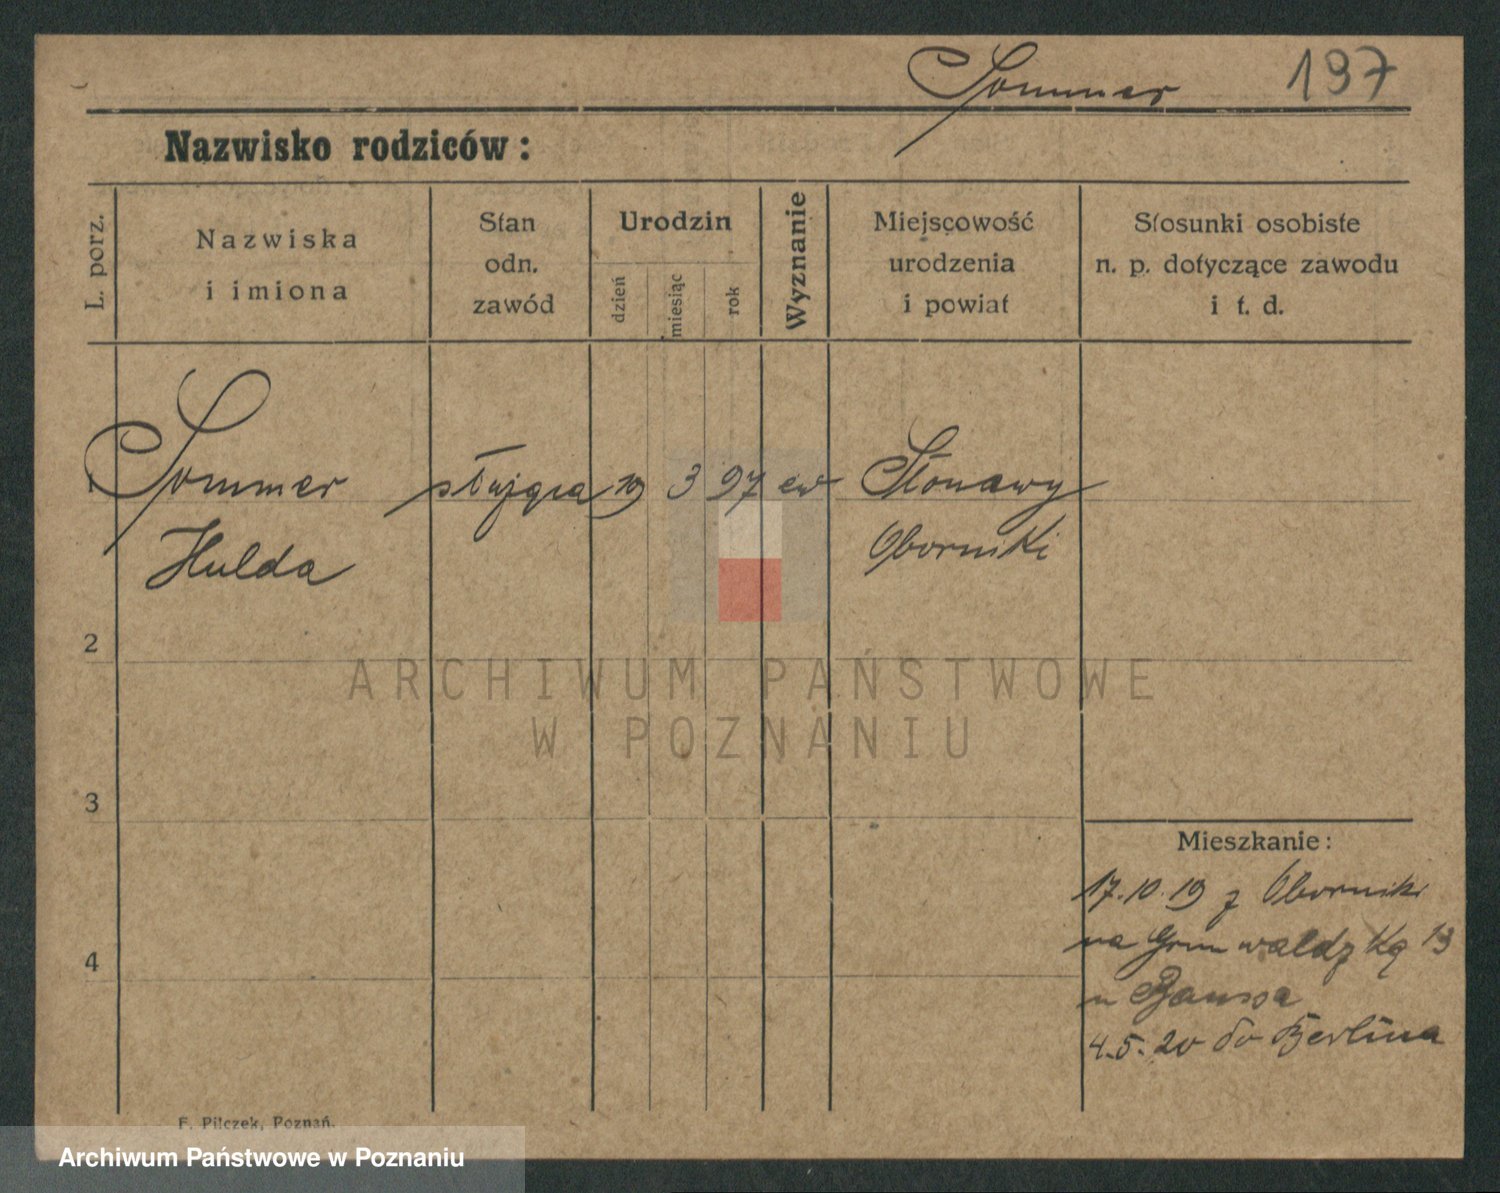 Sommer 197
Nazwisko rodziców:
L. porz.
Nazwiska
i imiona
Stan
odn.
zawód
Urodzin
dzień
miesiąc
rok
Wyznanie
Miejscowość
urodzenia
i powiat
Stosunki osobiste
n. p. dotyczące zawodu
i t. d.
1 Sommer służąca 19 3 97 ew Słonawy
Hulda Oborniki
2
ARCHIWUM PAŃSTWOWE
W POZNANIU
3
Mieszkanie:
17.10.19 z Oborniki
na Grunwaldzką 13
u
4
4.5.20 do Berlina
F. Pilczek, Poznań.
Archiwum Państwowe w Poznaniu